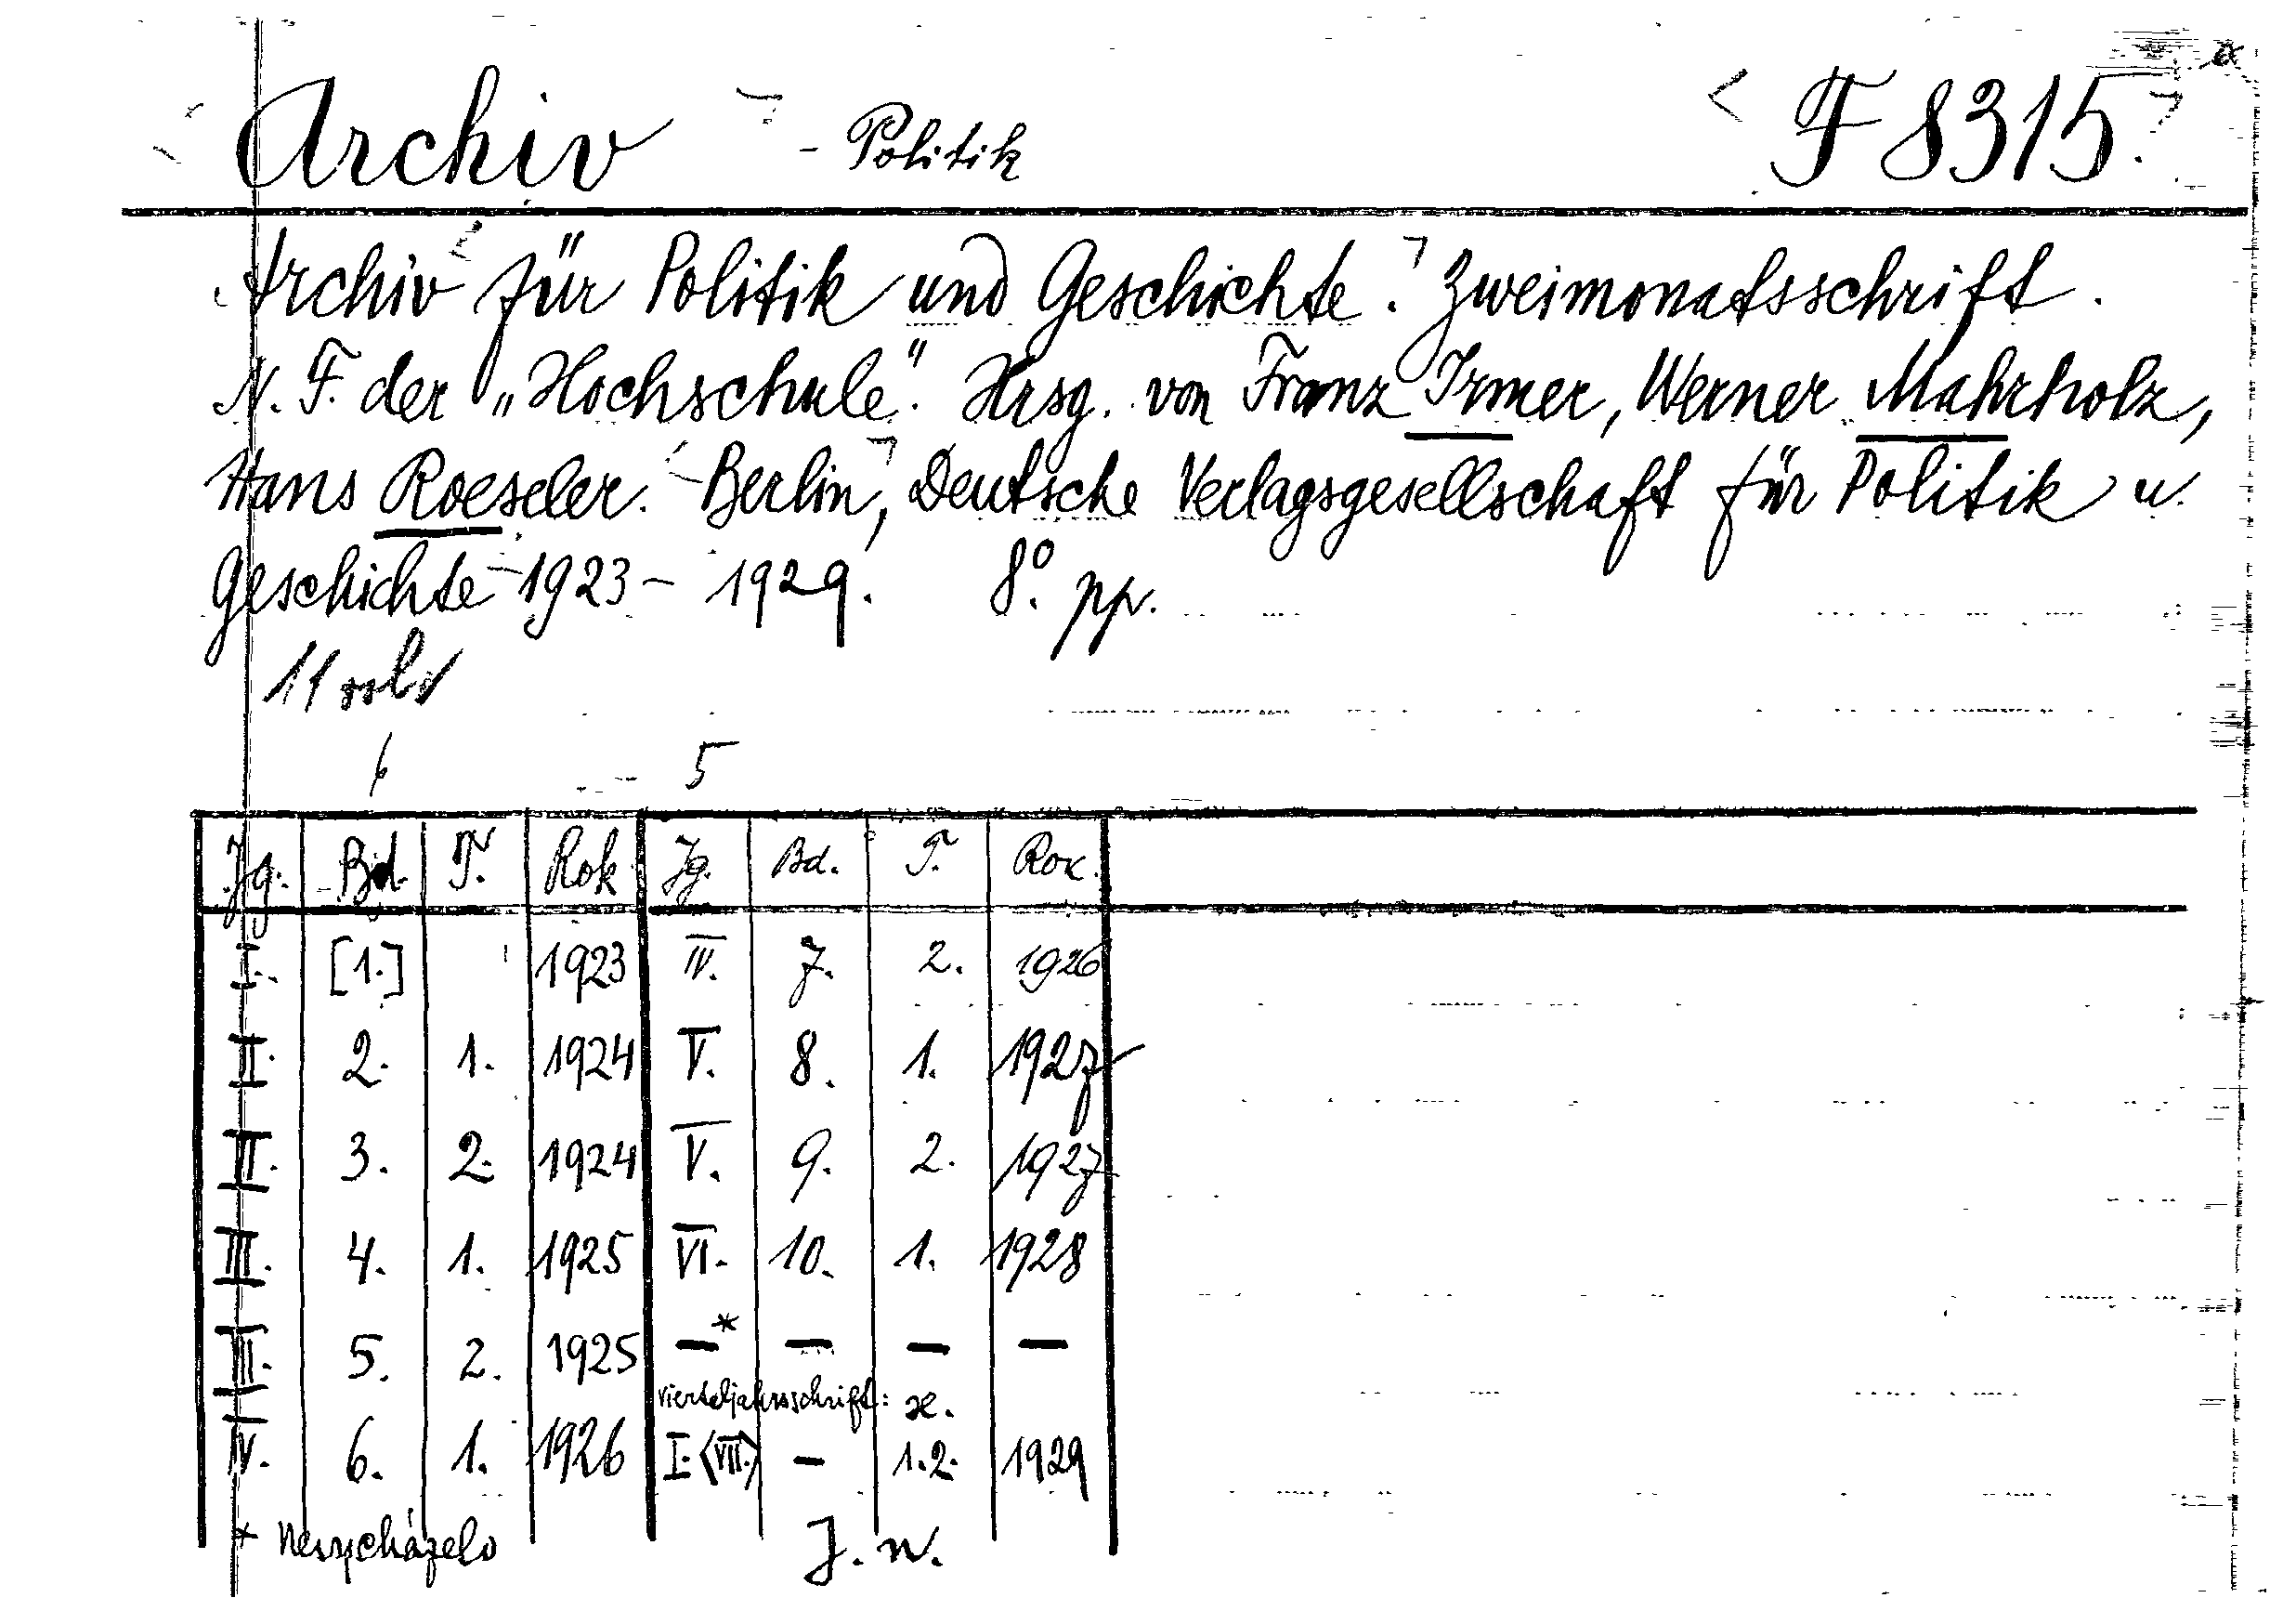 Archiv - Politik F 8315.
Archiv für Politik und Geschichte. Zweimonatsschrift.
N. F. der „Hochschule". Hrsg. von Franz Irmer, Werner Mahrholz,
Hans Roeseler. - Berlin, Deutsche Verlagsgesellschaft für Politik u.
Geschichte 1923 - 1929. 8°. pp.
11 vols
6 5
Jg. Bd. T. Rok Jg. Bd. T. Rok.
I. [1.] 1923 IV. 7. 2. 1926
II. 2. 1. 1924 V. 8. 1. 1927
II. 3. 2. 1924 V. 9. 2. 1927
III. 4. 1. 1925 VI. 10. 1. 1928
III. 5. 2. 1925 —* — — —
Vierteljahrsschrift:
IV. 6. 1. 1926 I. (VII.) — 1.2. 1929
* Nevycházelo J. n.